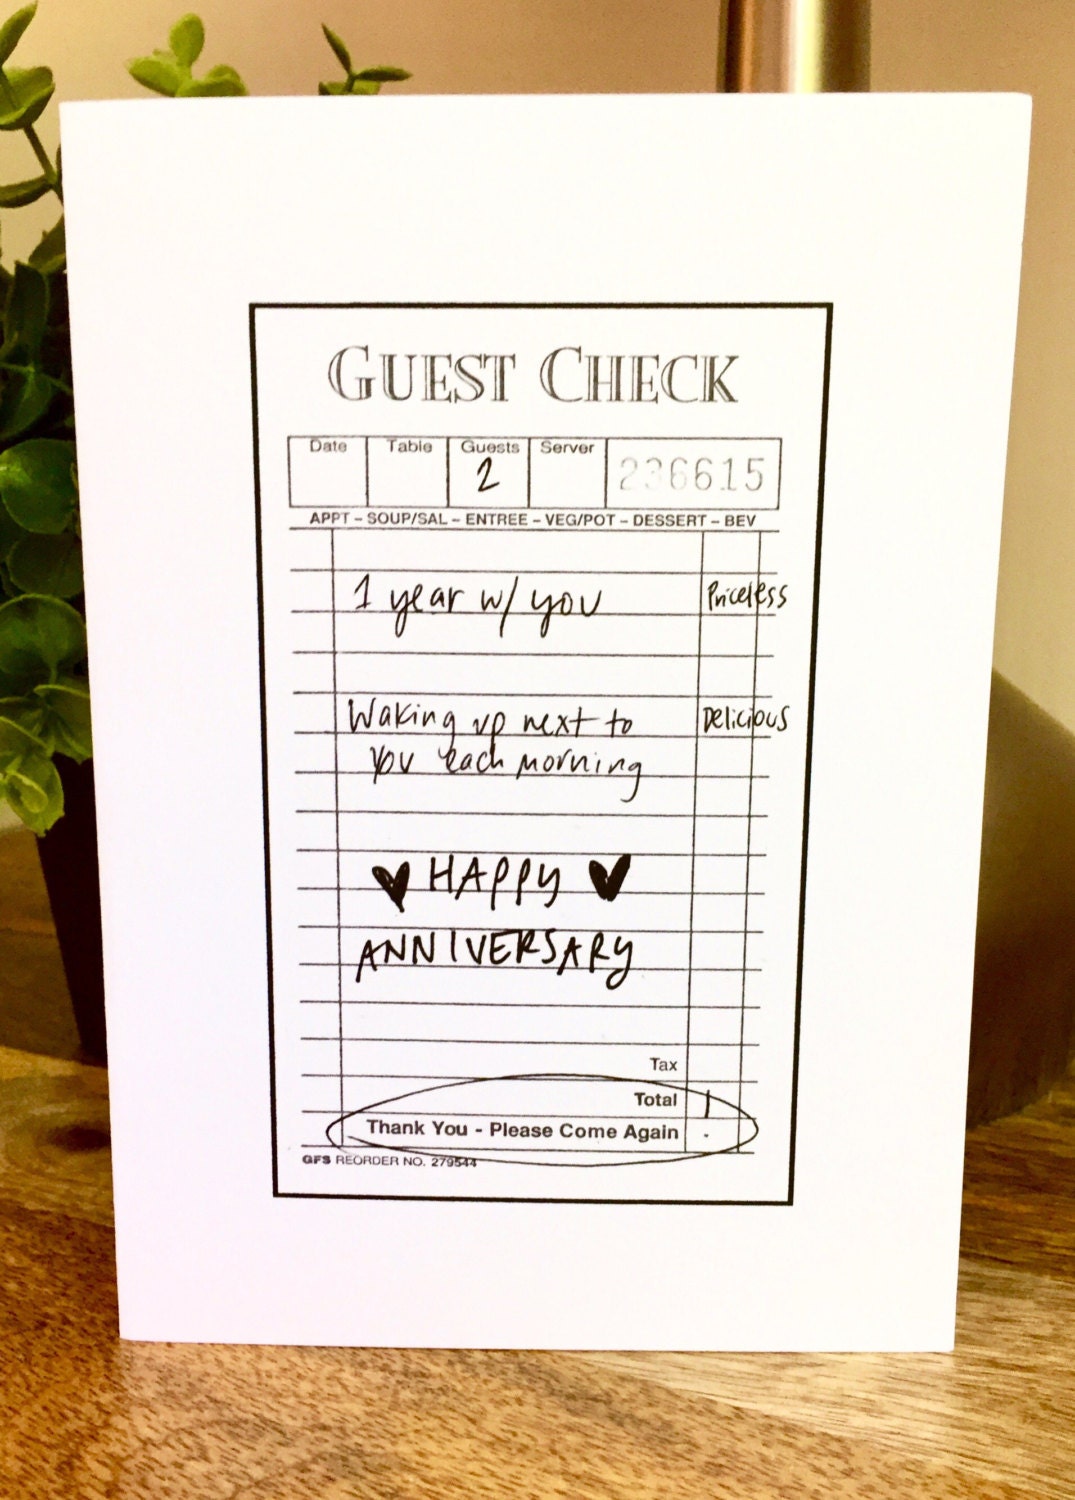 GUEST CHECK
Date Table Guests Server
2 236615
APPT – SOUP/SAL – ENTREE – VEG/POT – DESSERT – BEV
1 year w/ you Priceless
Waking up next to Delicious
you each morning
♥ HAPPY ♥
ANNIVERSARY
Tax
Total
Thank You - Please Come Again
GFS REORDER NO. 279544